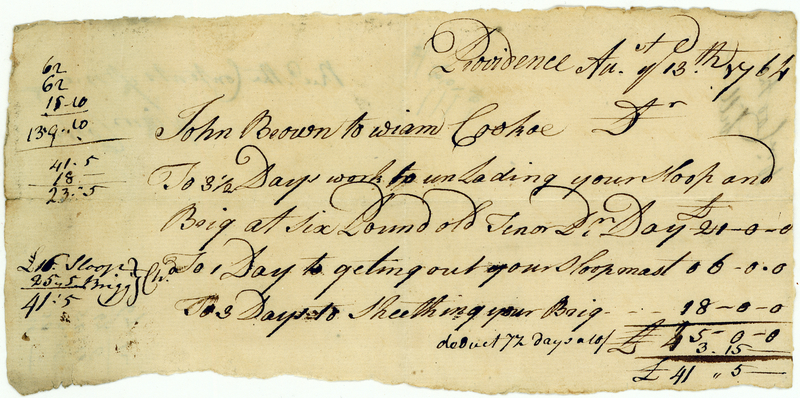 Providence Au.st ye 13.th 1764
62
62
15-10
139-10
John Brown to wiam Cooke Dr
41-5
18
23-5
To 3 1/2 Days work to unLading your Sloop and
Brig at Six Pound old Tenor Pr Day £21-0-0
£16. Sloop
25-5 Brigg
41-5
To 1 Day to geting out your Sloopmast 06-0-0
To 3 Days to Sheething your Brig - 18-0-0
£45-0-0
deduct 7½ days a 10/ 3.15
£41 " 5